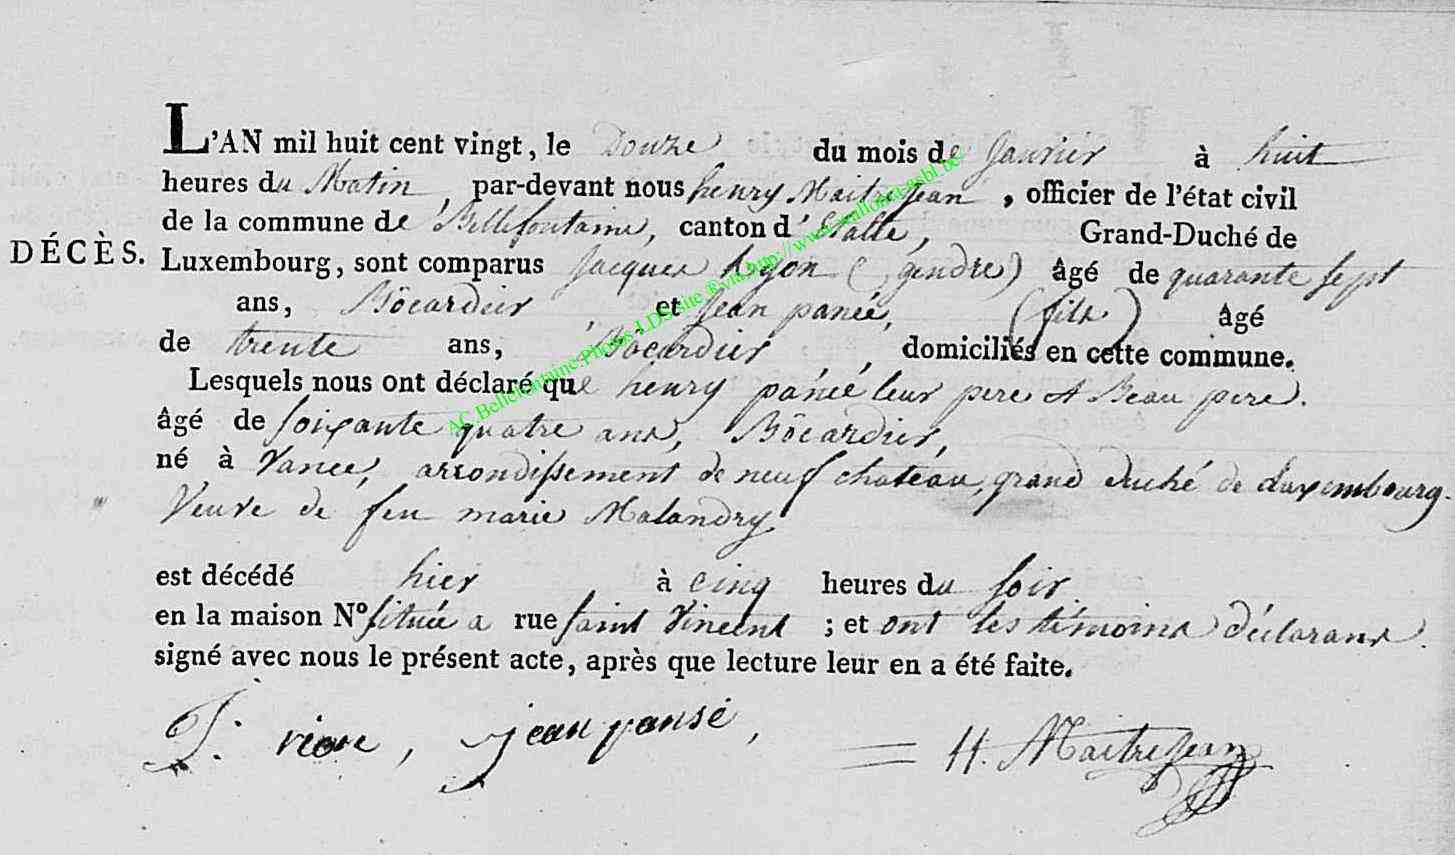 L'AN mil huit cent vingt, le Douze du mois de Janvier à huit
heures du Matin, par-devant nous henry Maitrejean, officier de l'état civil
de la commune de Bellefontaine, canton d'Etalle, Grand-Duché de
DÉCÈS.
Luxembourg, sont comparus Jacques (gendre) âgé de quarante sept
ans, Bôcardier, et Jean panée, (fils) âgé
de trente ans, Bôcardier, domiciliés en cette commune.
Lesquels nous ont déclaré que henry panée leur pere et Beau pere.
âgé de soixante quatre ans, Bôcardier,
né à Vance, arrondissement de neuf chateau, grand duché de Luxembourg.
Veuve de feu marie Malandry
est décédé hier à cinq heures du soir.
en la maison N° située a rue saint Vincent ; et ont les témoins déclarans
signé avec nous le présent acte, après que lecture leur en a été faite.
J. jean pansé, H. Maitrejean
AC Bellefontaine. Photos LDS site